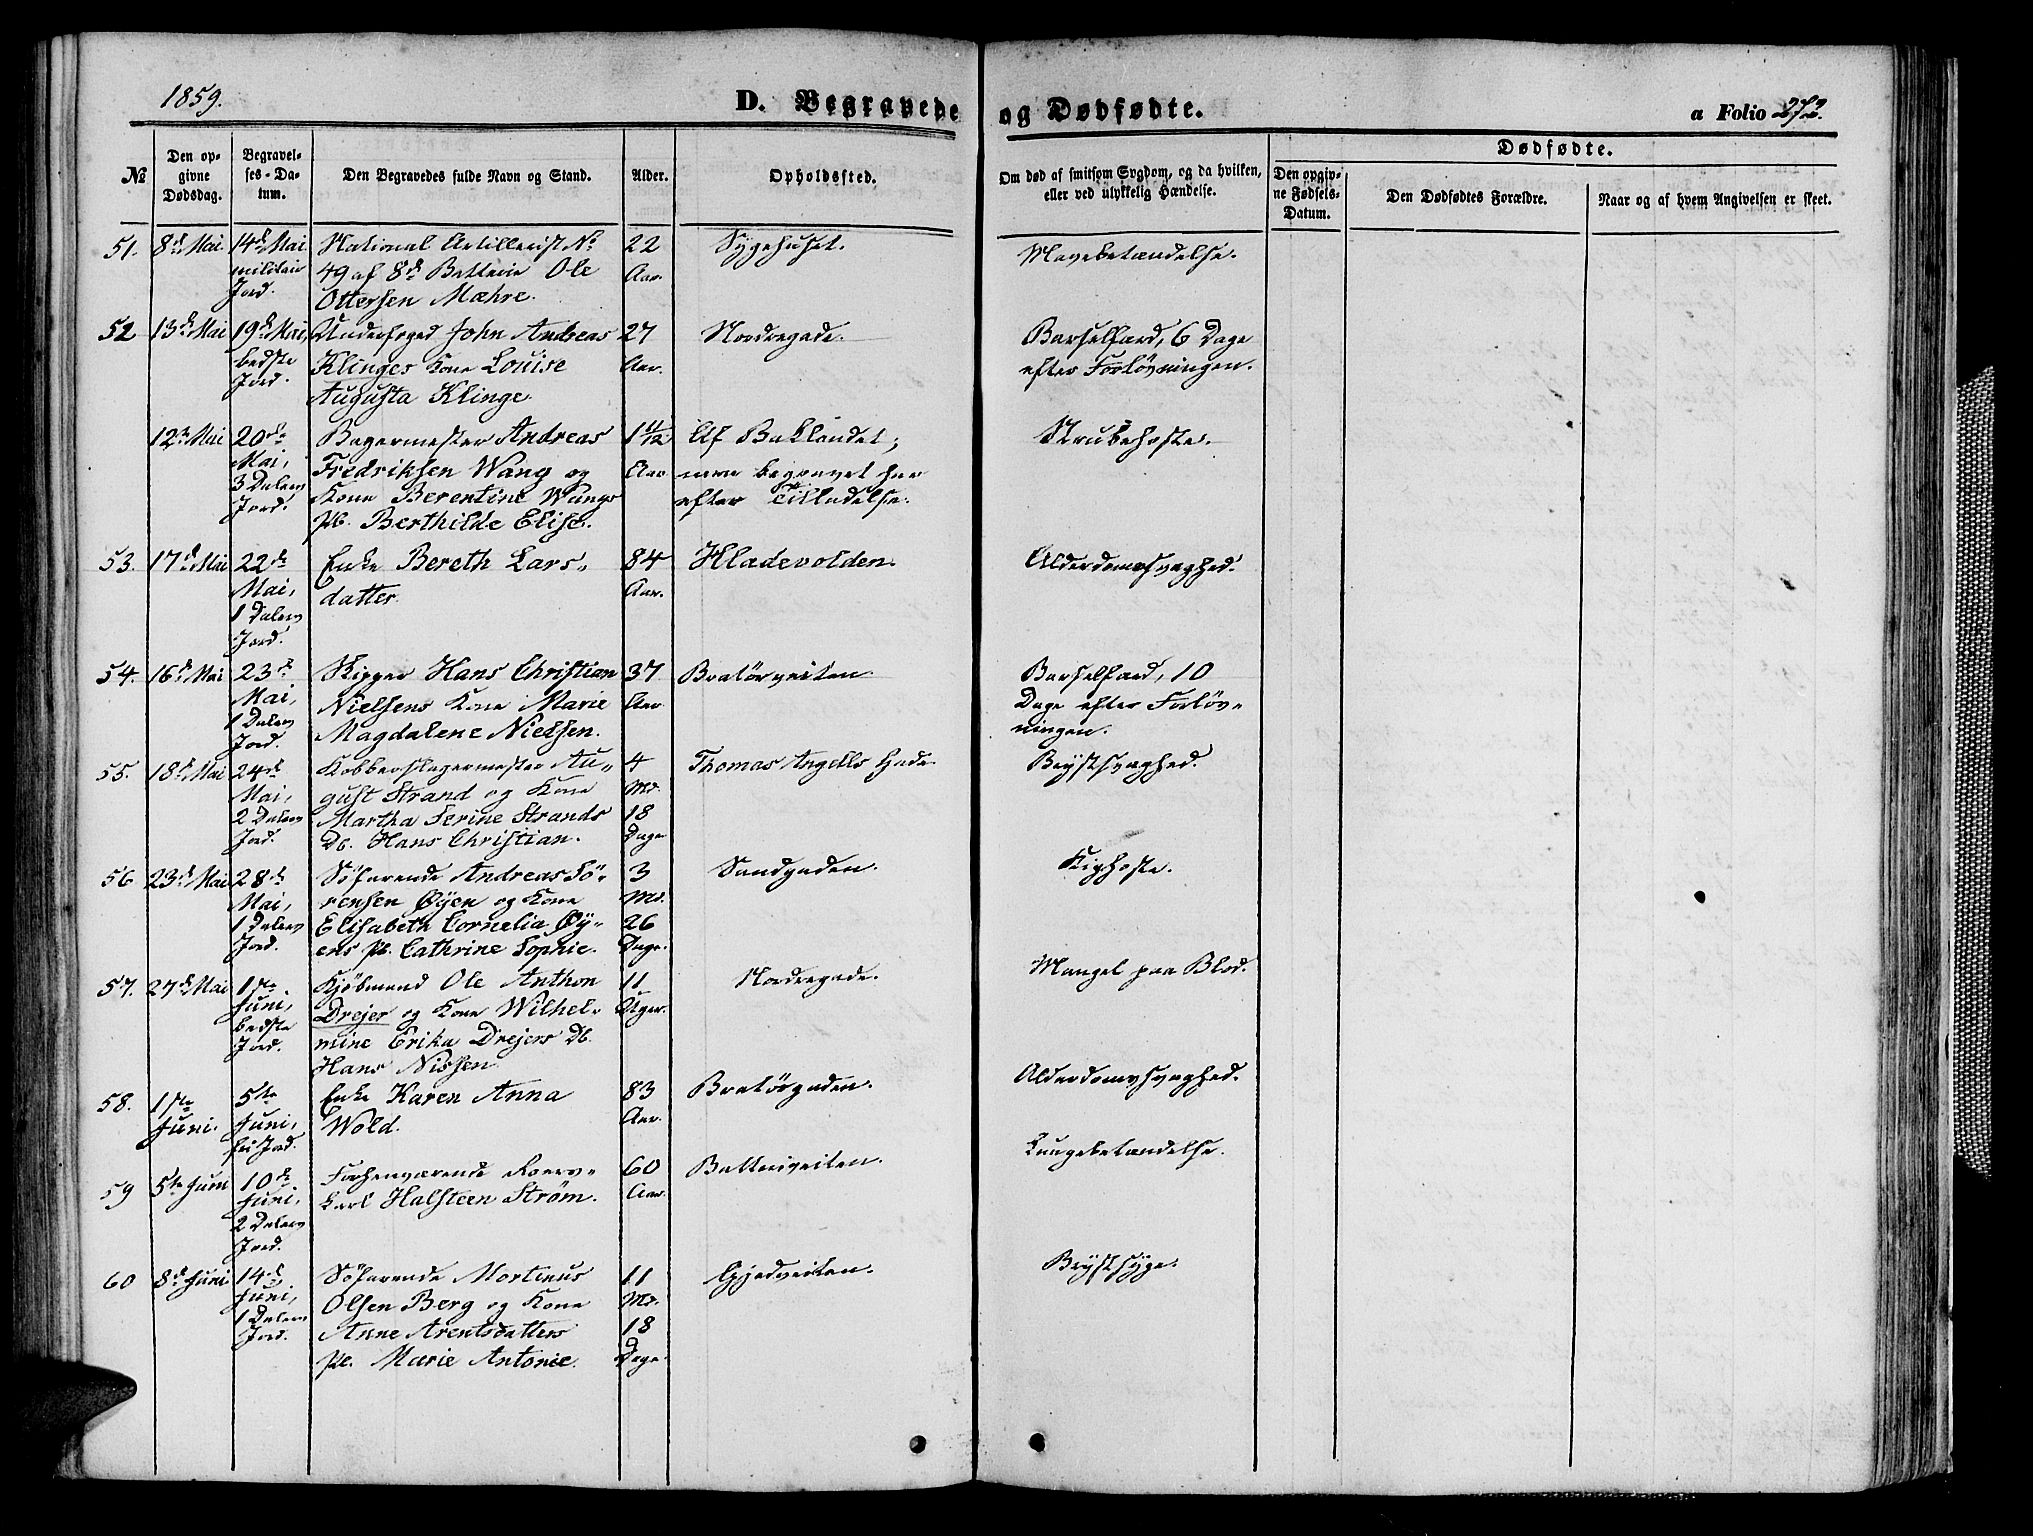 1859.
D. Begravede og Dødfødte.
a Folio 272.
№
Den opgivne Dødsdag.
Begravelses-Datum.
Den Begravedes fulde Navn og Stand.
Alder.
Opholdssted.
Om død af smitsom Sygdom, og da hvilken, eller ved ulykkelig Hændelse.
Dødfødte.
Den opgivne Fødsels-Datum.
Den Dødfødtes Forældre.
Naar og af hvem Angivelsen er skeet.
51. 8de Mai 14de Mai National Artillerist No 22 Sygehuset. Mavebetændelse.
militair 49 af 8de Batterie Ole Aar.
Jord. Ottersen Mæhre.
52 13de Mai 19de Mai, Underfoged John Andreas 27 Nordregade. Barselfærd, 6 Dage
bedste Klinges Kone Louise Aar. efter Forløsningen.
Jord. Augusta Klinge.
12te Mai 20de Bagermester Andreas 1 1/2 Af Baklandet; Strubehoste.
Mai, Fredriksen Wang og Aar men begravet her
3 Dalers Kone Berentine Wangs efter Tilladelse.
Jord. Pb. Berthilde Elise.
53. 17de Mai 22de Enke Bereth Lars- 84 Hladevolden. Alderdomssvaghed.
Mai, datter. Aar.
1 Dalers
Jord.
54. 16de Mai 23de Skipper Hans Christian 37 Bratørveiten. Barselfærd, 10
Mai, Nielsens Kone Marie Aar Dage efter Forløs-
1 Dalers Magdalene Nielsen. ningen.
Jord.
55. 18de Mai 24de Kobberslagermester Au- 4 Thomas Angells Gade. Brystsvaghed.
Mai, gust Strand og Kone Md.
2 Dalers Martha Serine Strands 18
Jord. Db. Hans Christian. Dage
56 23de Mai 28de Söfarende Andreas Sö- 3 Sandgaden. Kighoste.
Mai, rensen Øyen og Kone Md.
1 Dalers Elisabeth Cornelia Øy- 26
Jord. ens Pb. Cathrine Sophie. Dage.
57. 27de Mai 1ste Kjöbmand Ole Anthon 11 Nordregade. Mangel paa Blod.
Juni, Drejer og Kone Wilhel- Uger.
bedste mine Erika Drejers Db.
Jord. Hans Nissen.
58. 1ste 5te Enke Karen Anna 83 Bratörgaden. Alderdomssvaghed.
Juni. Juni, Wold. Aar.
fri Jord.
59 5te Juni 10de Forhenværende 60 Batteriveiten. Lungebetændelse.
Juni, karl Halsteen Strøm. Aar.
2 Dalers
Jord.
60 8de Juni 14de Söfarende Mortinus 11 Gjedveiten. Brystsyge.
Juni, Olsen Berg og Kone Md.
1 Dalers Anne Arentsdatters 18
Jord. Pb. Marie Antonie. Dage.